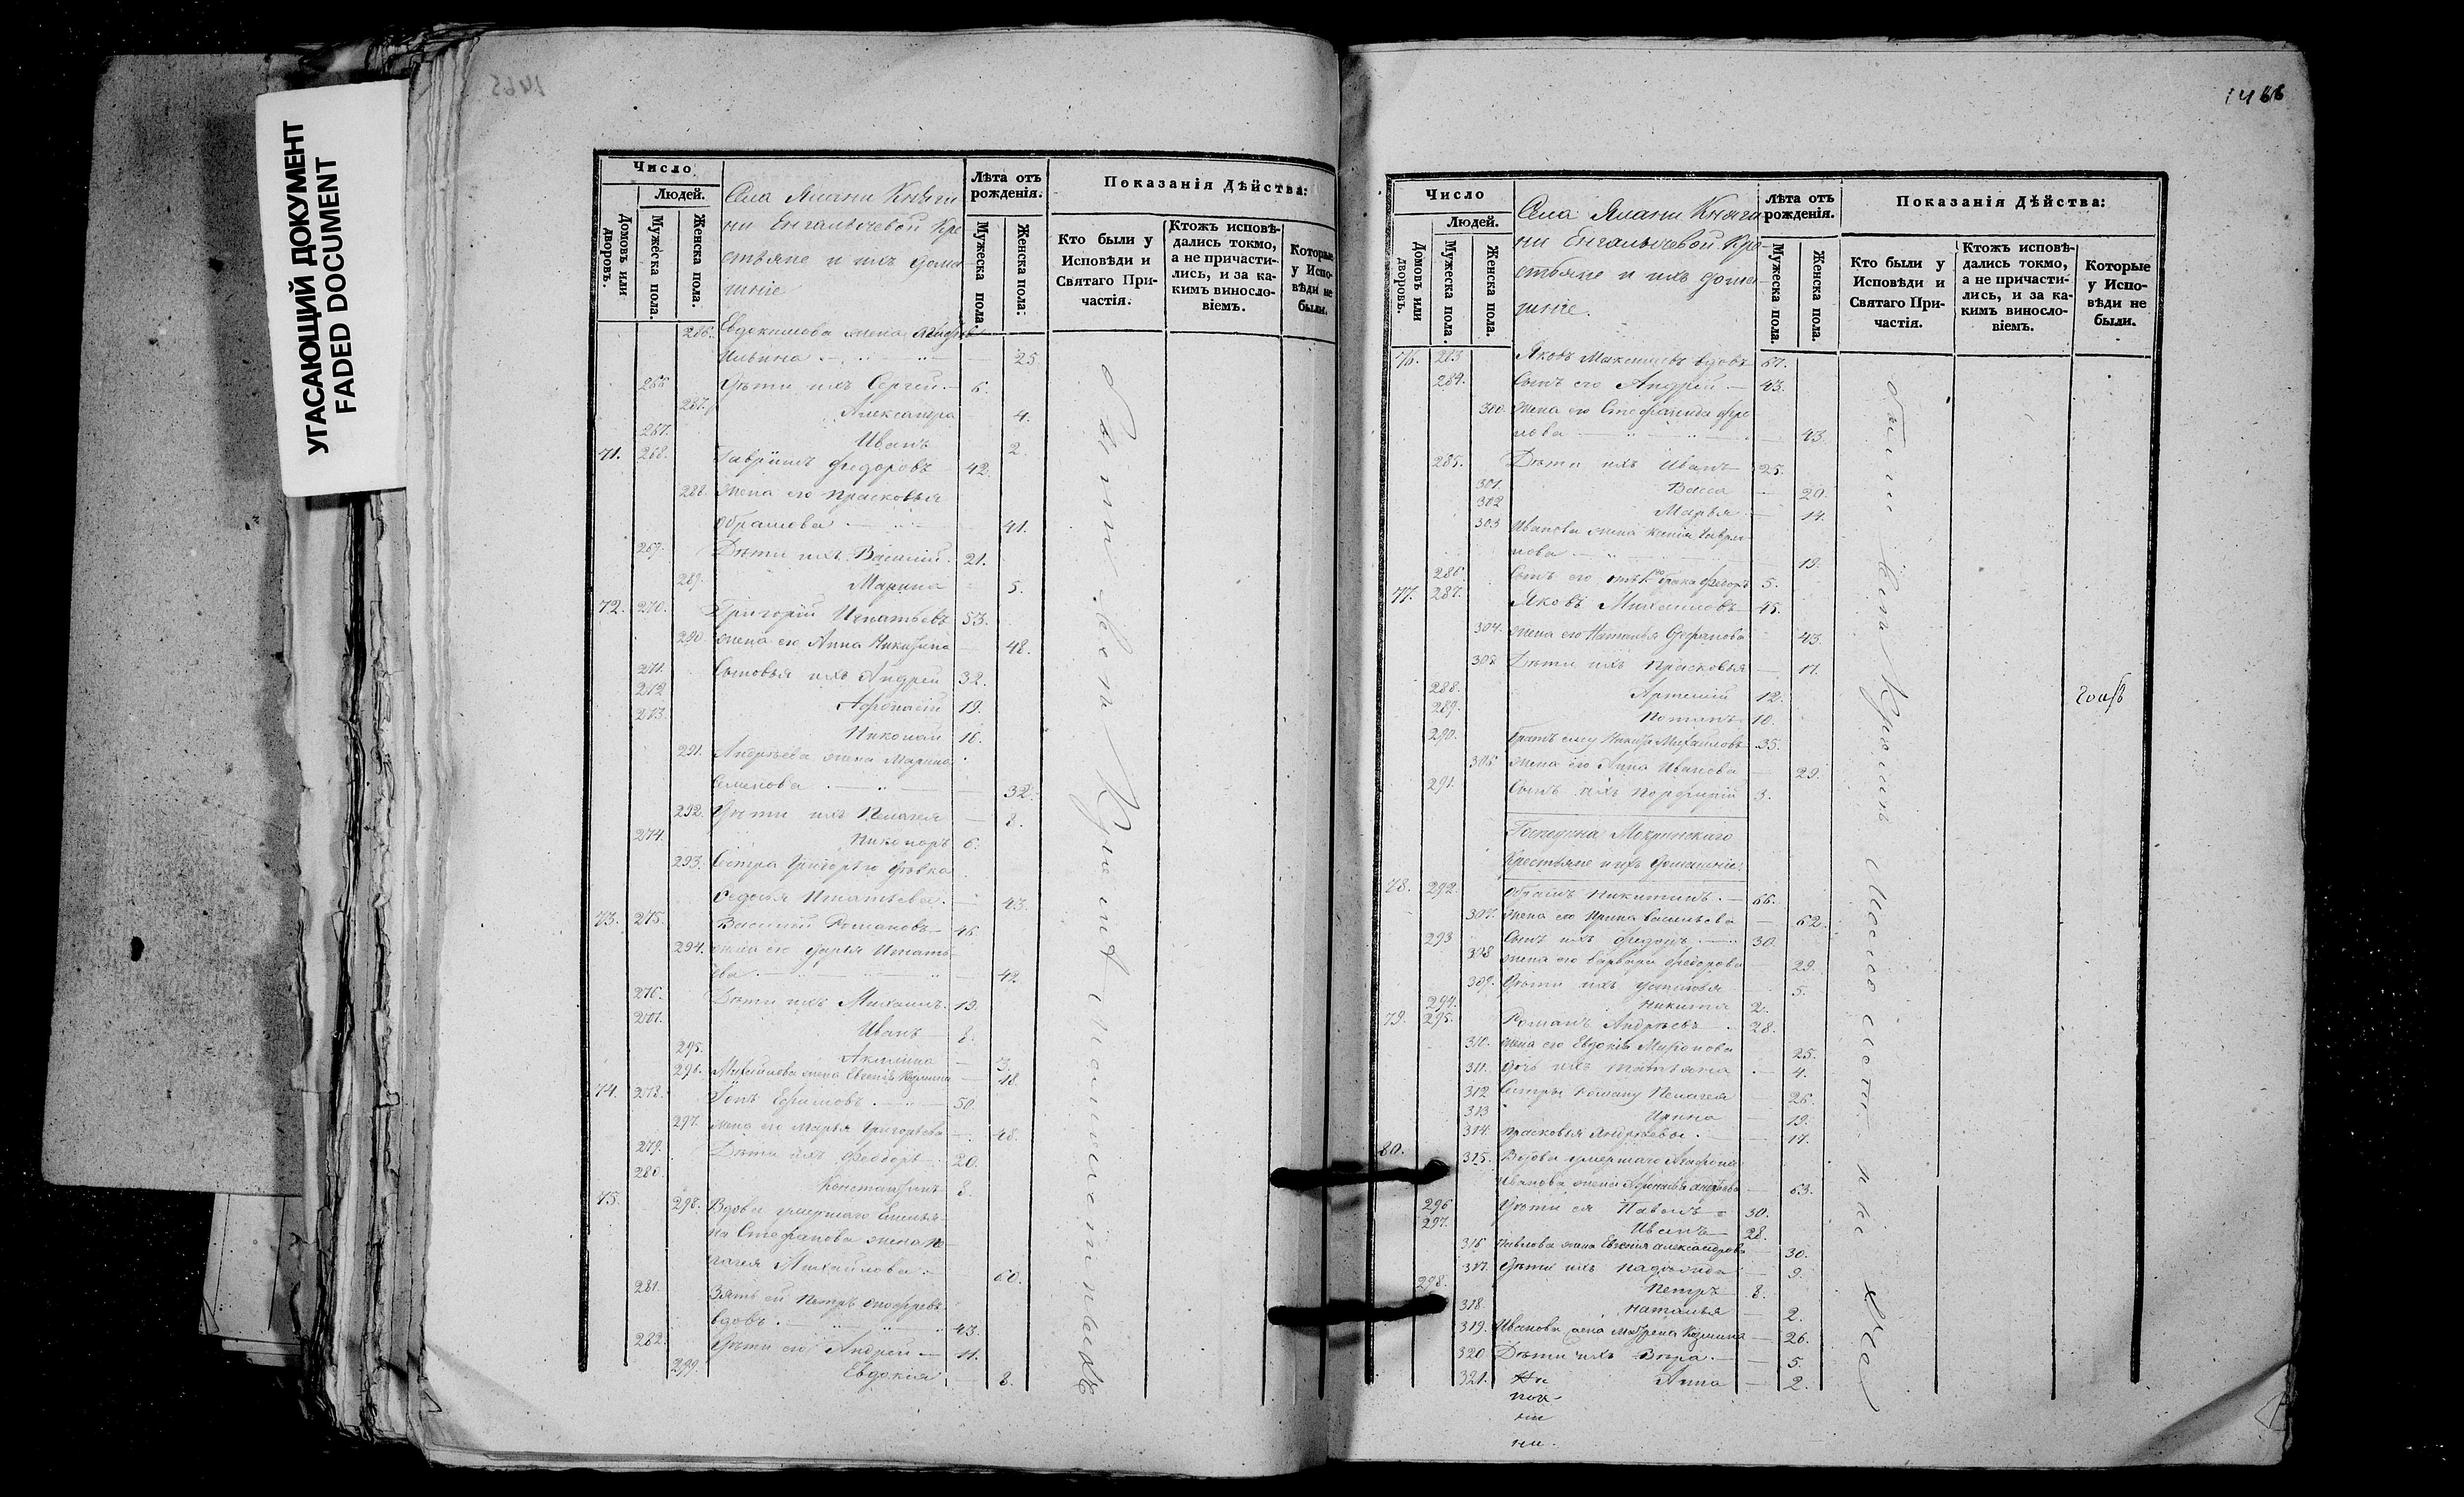 УГАСАЮЩИЙ ДОКУМЕНТ
FADED DOCUMENT
1465
Число
Людей.
Домовъ или дворовъ.
Мужеска пола.
Женска пола.
Села Княги
ни Енгалычевой Кре
стьяне и ихъ домаш
ніе
Лѣта отъ рожденія.
Мужеска пола
Женска пола.
Показанія Дѣйства:
Кто были у Исповѣди и Святаго При-частія.
Ктожъ исповѣ-дались токмо, а не причасти-лись, и за ка-кимъ винословіемъ.
Которые у Испо-вѣди не были.
286. Евдокимова жена
Ильина 25.
266. Дѣти ихъ Сергей 6.
287. Александра 4.
267. Иванъ 2.
71. 268. Гавріилъ Федоровъ 42.
288. жена его Прасковья
Обрамова 41.
269. Дѣти ихъ Василий 21.
289. Марина 5.
72. 270. Григорій Игнатьевъ 53.
290. жена его Анна Никифор 48.
271. Сыновья ихъ Андрей 32.
272. Афонасій 19.
273. Николай 16.
291. Андрѣева жена Марина
Семенова 32.
292. Дѣти ихъ Пелагея 8.
274. Никоноръ 6.
293. Сестра Григорья дѣвка
Федосья Игнатьева 43.
73. 275. Василий Романовъ 46.
294. жена его Дарья Игнать
ева 42.
276. Дѣти ихъ Михаилъ 19.
277. Иванъ 8.
295. Акилина 3.
296. Михайлова жена Евгенія 18.
74. 278. Іонъ Ефимовъ 50
297. жена его Марья Григорьева 48.
279. Дѣти ихъ Федоръ 20.
280. Константинъ 8.
75. 298. Вдова умершаго Емелья
на Стефанова жена Пе
лагея Михайлова 60.
281. Зять ей Петръ
вдовъ 43.
282. Дѣти его Андрей 11.
299. Евдокія 8.
были вси
1466
Число
Людей.
Домовъ или дворовъ.
Мужеска пола
Женска пола.
Села Княги
ни Енгалычевой Кре
стьяне и ихъ домаш
ніе.
Лѣта отъ рожденія.
Мужеска пола.
Женска пола.
Показанія Дѣйства:
Кто были у Исповѣди и Святаго При-частія.
Ктожъ исповѣ-дались токмо, а не причасти-лись, и за ка-кимъ винословіемъ.
Которые у Испо-вѣди не были.
76. 283 Яковъ Максимовъ вдовъ 67.
284. Сынъ его Андрей 43.
300. жена его Стефанида
43.
285. Дѣти ихъ Иванъ 25.
301. Васса 20.
302 Марья 14.
303 Иванова жена Ксенія Гаври
лова 19.
286. Сынъ его отъ брака Федоръ 5.
77. 287. Яковъ Михаиловъ 45.
304. жена его Наталья 43.
305. Дѣти ихъ Прасковья 17.
288. Артемій 12.
289. Потапъ 10.
290. братъ ему Михайловъ 35.
306 жена его Анна Иванова 29.
291. Сынъ ихъ Порфирій 3.
Господина
Крестьяне и ихъ домашніе.
78. 292. Обрамъ Никитинъ 66.
307. жена его Ирина Васильева 62.
293 Сынъ ихъ Федоръ 30.
308 жена его Варвара Федорова 29.
309. Дѣти ихъ Устинья 5.
294. Никита 2.
79. 295. Романъ Андрѣевъ 28.
310. жена его Евдокія 25.
311. дочь ихъ Татьяна 4.
312 Сестры Роману Пелагея 26.
313 Ирина 19.
314 Прасковья Андрѣевы 17.
80. 315. Вдова умершаго Агафона
Иванова жена 63.
296 Дѣти ея Павелъ 30.
297. Иванъ 28.
316 Павлова жена Евгенія Александрова 30.
317. Дѣти ихъ Надежда 9.
298. Петръ 8.
318. Наталья 2.
319. Иванова жена Матрена Козмина 26.
320 Дѣти ихъ Вѣра 5.
321. Анна 2.
были вси